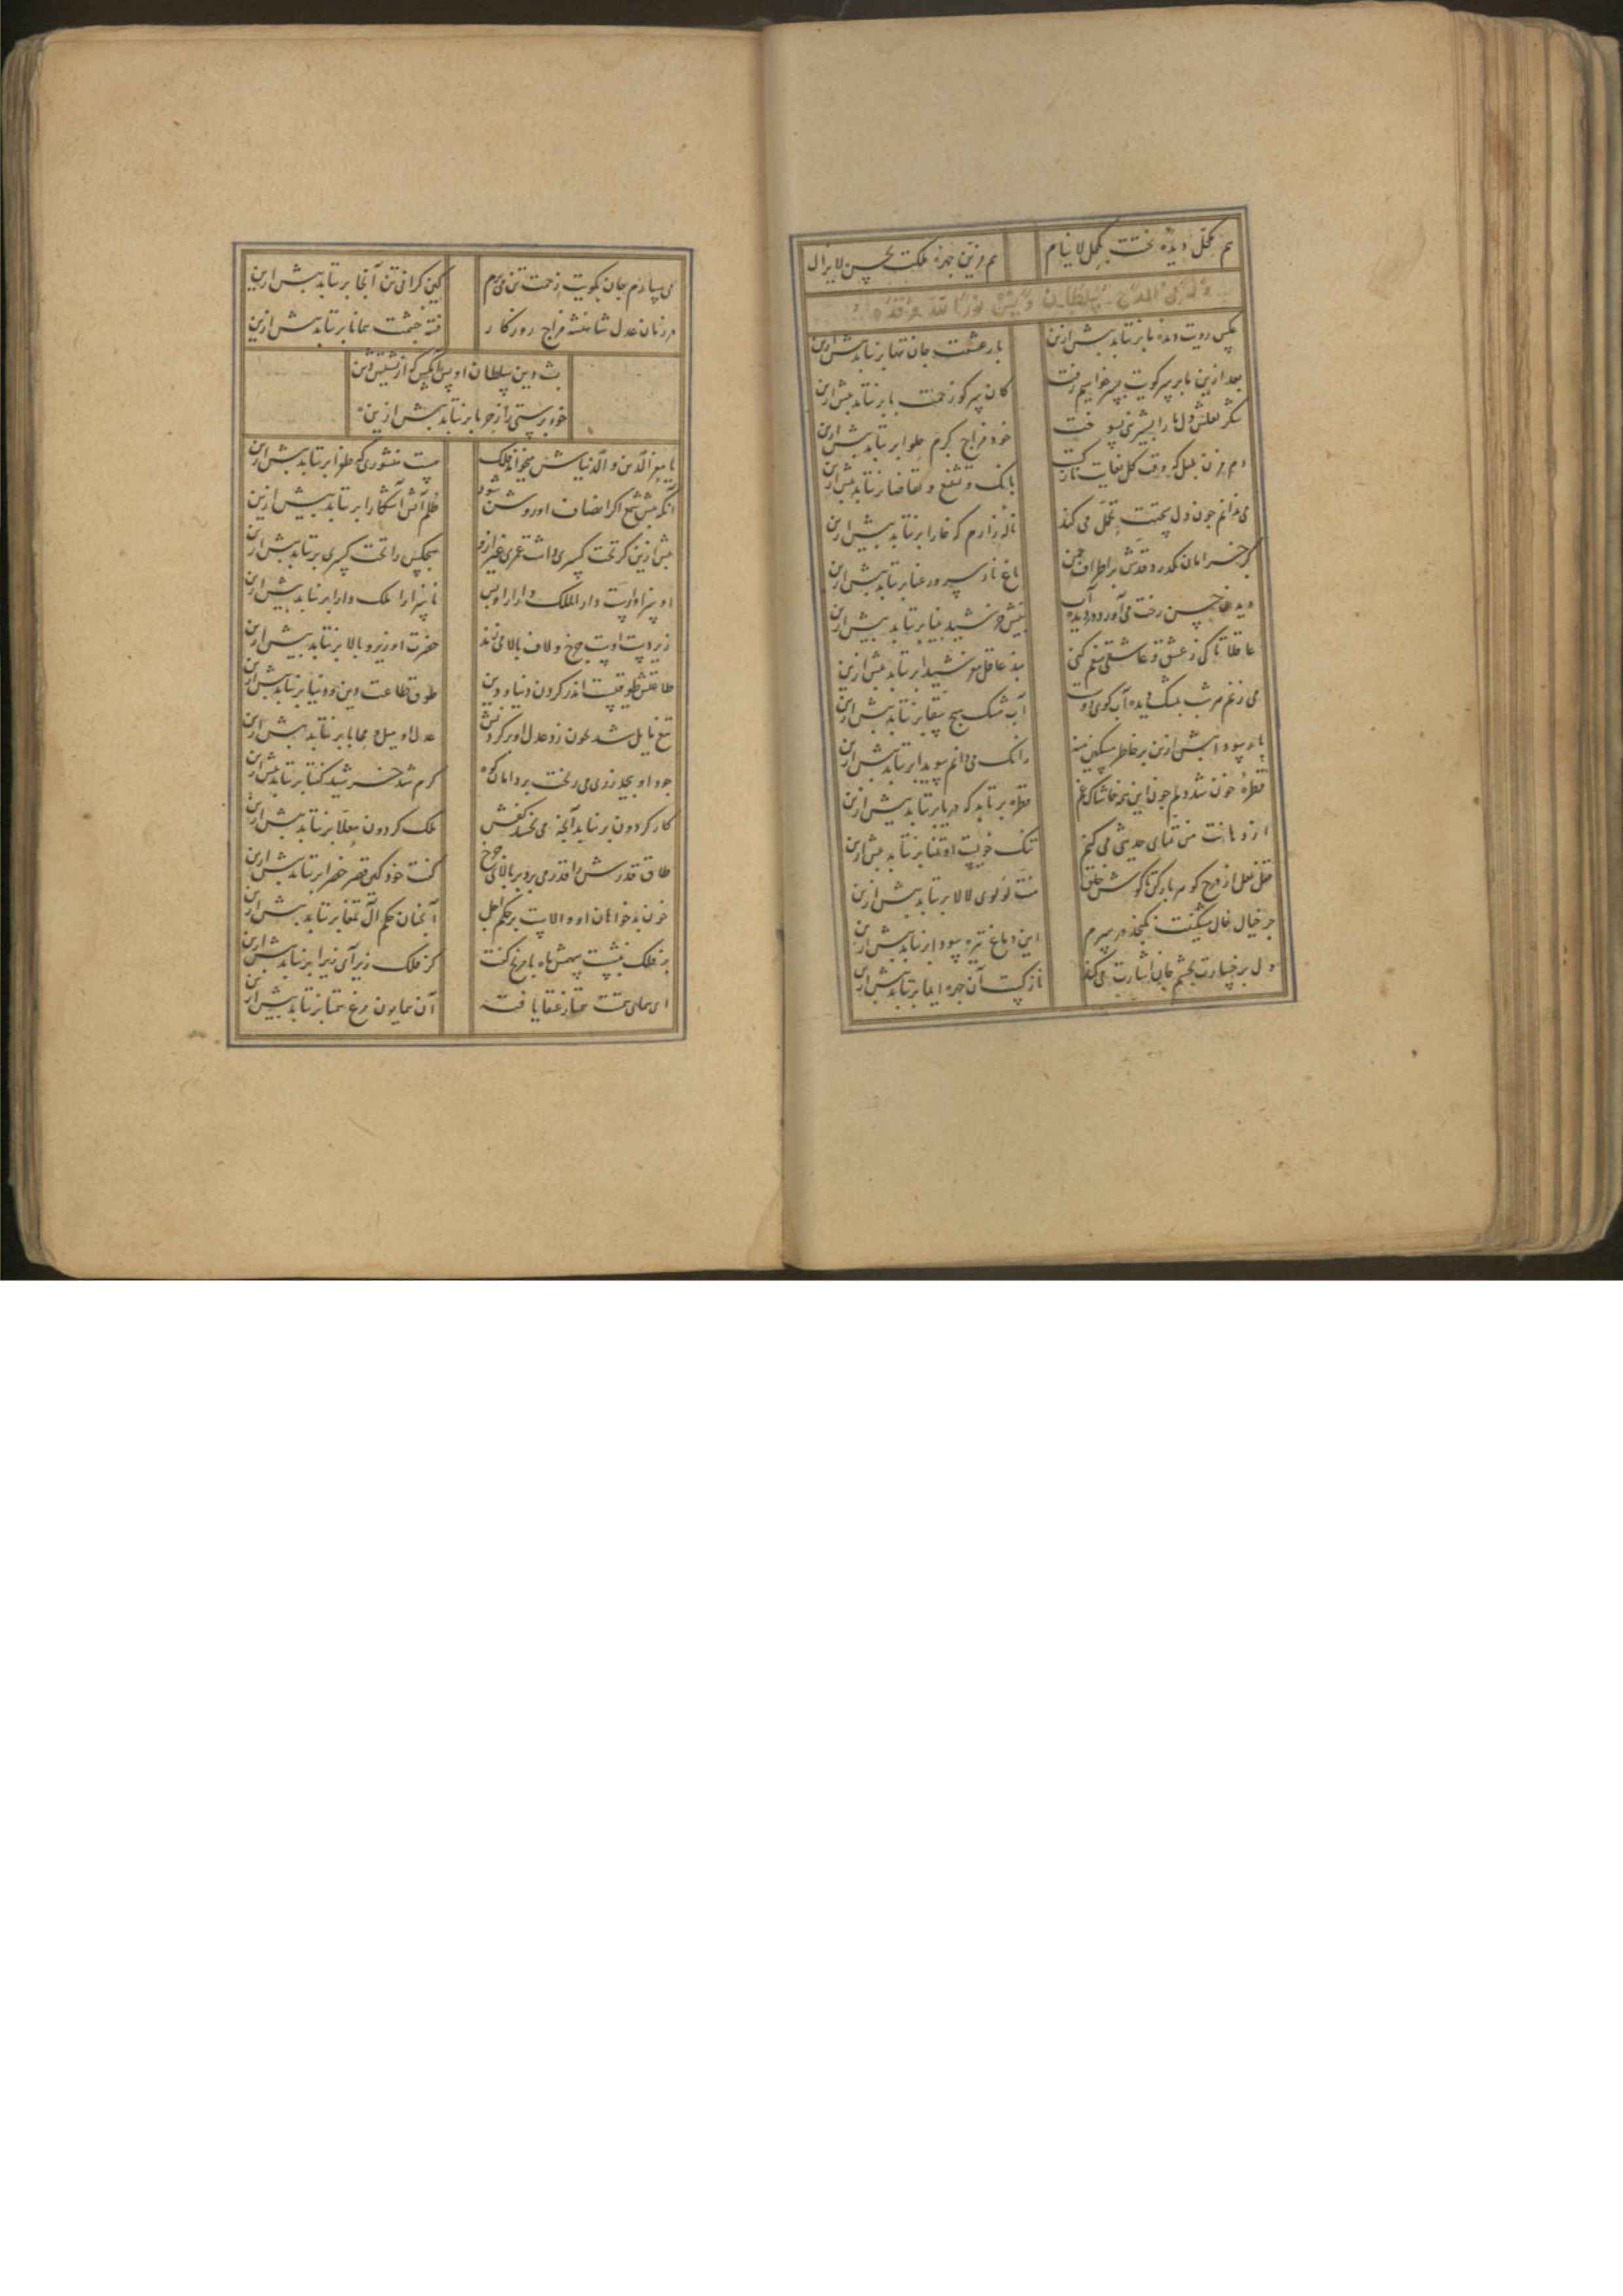 هم بکحل دیده بختت بکحل لاینام هم مزین چهره ملکت بحسن لایزال
وله فی المدح سلطان ویس نورالله مرقده
عکس رویت دیده ما برنتابد بیش ازین بار عشقت جان تنها برنتابد بیش ازین
بعد ازین ما بر سر کویت بسر خواهیم رفت کان سر کو زحمت پا برنتابد بیش ازین
شکر لعلش دل ما را بشیرینی بسوخت خود مزاج گرم حلوا برنتابد بیش ازین
دم مزن بلبل که وقت گل بغایت نازکست بانگ و تشنیع و تقاضا برنتابد بیش ازین
می ندانم چون دل سختت تحمل می کند ناله زارم که خارا برنتابد بیش ازین
گر خرامان بگذرد قدش بر اطراف چمن باغ ناز سرو رعنا برنتابد بیش ازین
دیدن حسن رخت می آورد در دیده آب بینش خورشید بینا برنتابد بیش ازین
عاقلا تا کی ز عشق و عاشقی منعم کنی پند عاقل مرد شیدا برنتابد بیش ازین
می زنم هر شب بمشک دیده آب کوی دوست آب مشک هیچ سقا برنتابد بیش ازین
بار سودا بیش ازین بر خاطر مسکین منه زانک می دانم سویدا برنتابد بیش ازین
قطره خون شد دلم چون این همه خاشاک غم قطره برتابد که دریا برنتابد بیش ازین
از دهانت من تمنای حدیثی می کنم تنگ خویست او تمنا برنتابد بیش ازین
قفل لعل از درج گوهر باز کن تا گوش خلق منت لولوی لالا برنتابد بیش ازین
جز خیال خال مشکینت نگنجد در سرم این دماغ تیره سودا برنتابد بیش ازین
دل بر خسارت بچشم جان اشارت می کند نازکست آن چهره ایما برنتابد بیش ازین
می سپارم جان بکویت زحمت تن می برم کین گرانی تن آنجا برنتابد بیش ازین
در زمان عدل شاهنشه مزاج روزگار فتنه چشمت همانا برنتابد بیش ازین
پشت دین سلطان اویس آنکس که از تمکین دین
خود پرستی را ز جوزا برنتابد بیش ازین
تا معز الدین و الدنیاش میخواند فلک هست منشوری که طغرا برنتابد بیش ازین
آنکه پیش شمع اگر انصاف او روشن شود ظلم آتش آشکارا برنتابد بیش ازین
پیش ازین گر تخت کسری داشت عمری غیر ازو هیچکس را تخت کسری برنتابد بیش ازین
او سزاوارست دار الملک دارا را و بس ناسزا را ملک دارا برنتابد بیش ازین
زیر دست اوست چرخ و لاف بالا می زند حضرت او زیر و بالا برنتابد بیش ازین
طاعتش طوقیست اندر گردن دنیا و دین طوق طاعت دین و دنیا برنتابد بیش ازین
تیغ مایل شد بخون زد عدل او بر گردنش عدل او میل و محابا برنتابد بیش ازین
جود او بیحد زر می ریخت بر دامان کوه گرم شد خورشید گفتا برنتابد بیش ازین
کار گردون برنیاید آنچه می بخشد کفش ملک گردون معلا برنتابد بیش ازین
طاق قدرش را قدر می برد بر بالای چرخ گفت خود کین قصر خضرا برنتابد بیش ازین
خون بدخواهان او والاست بر حکم اجل آنچنان حکم آل تمغا برنتابد بیش ازین
بر فلک بنشست سهمش ماه با مریخ گفت کز فلک زیر آی زیرا برنتابد بیش ازین
ای همای همتت همتاز عنقا یافته آن همایون مرغ همتا برنتابد بیش ازین